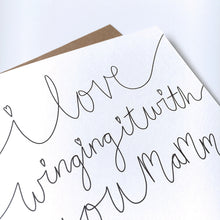 i love
winging it with
you MaMm